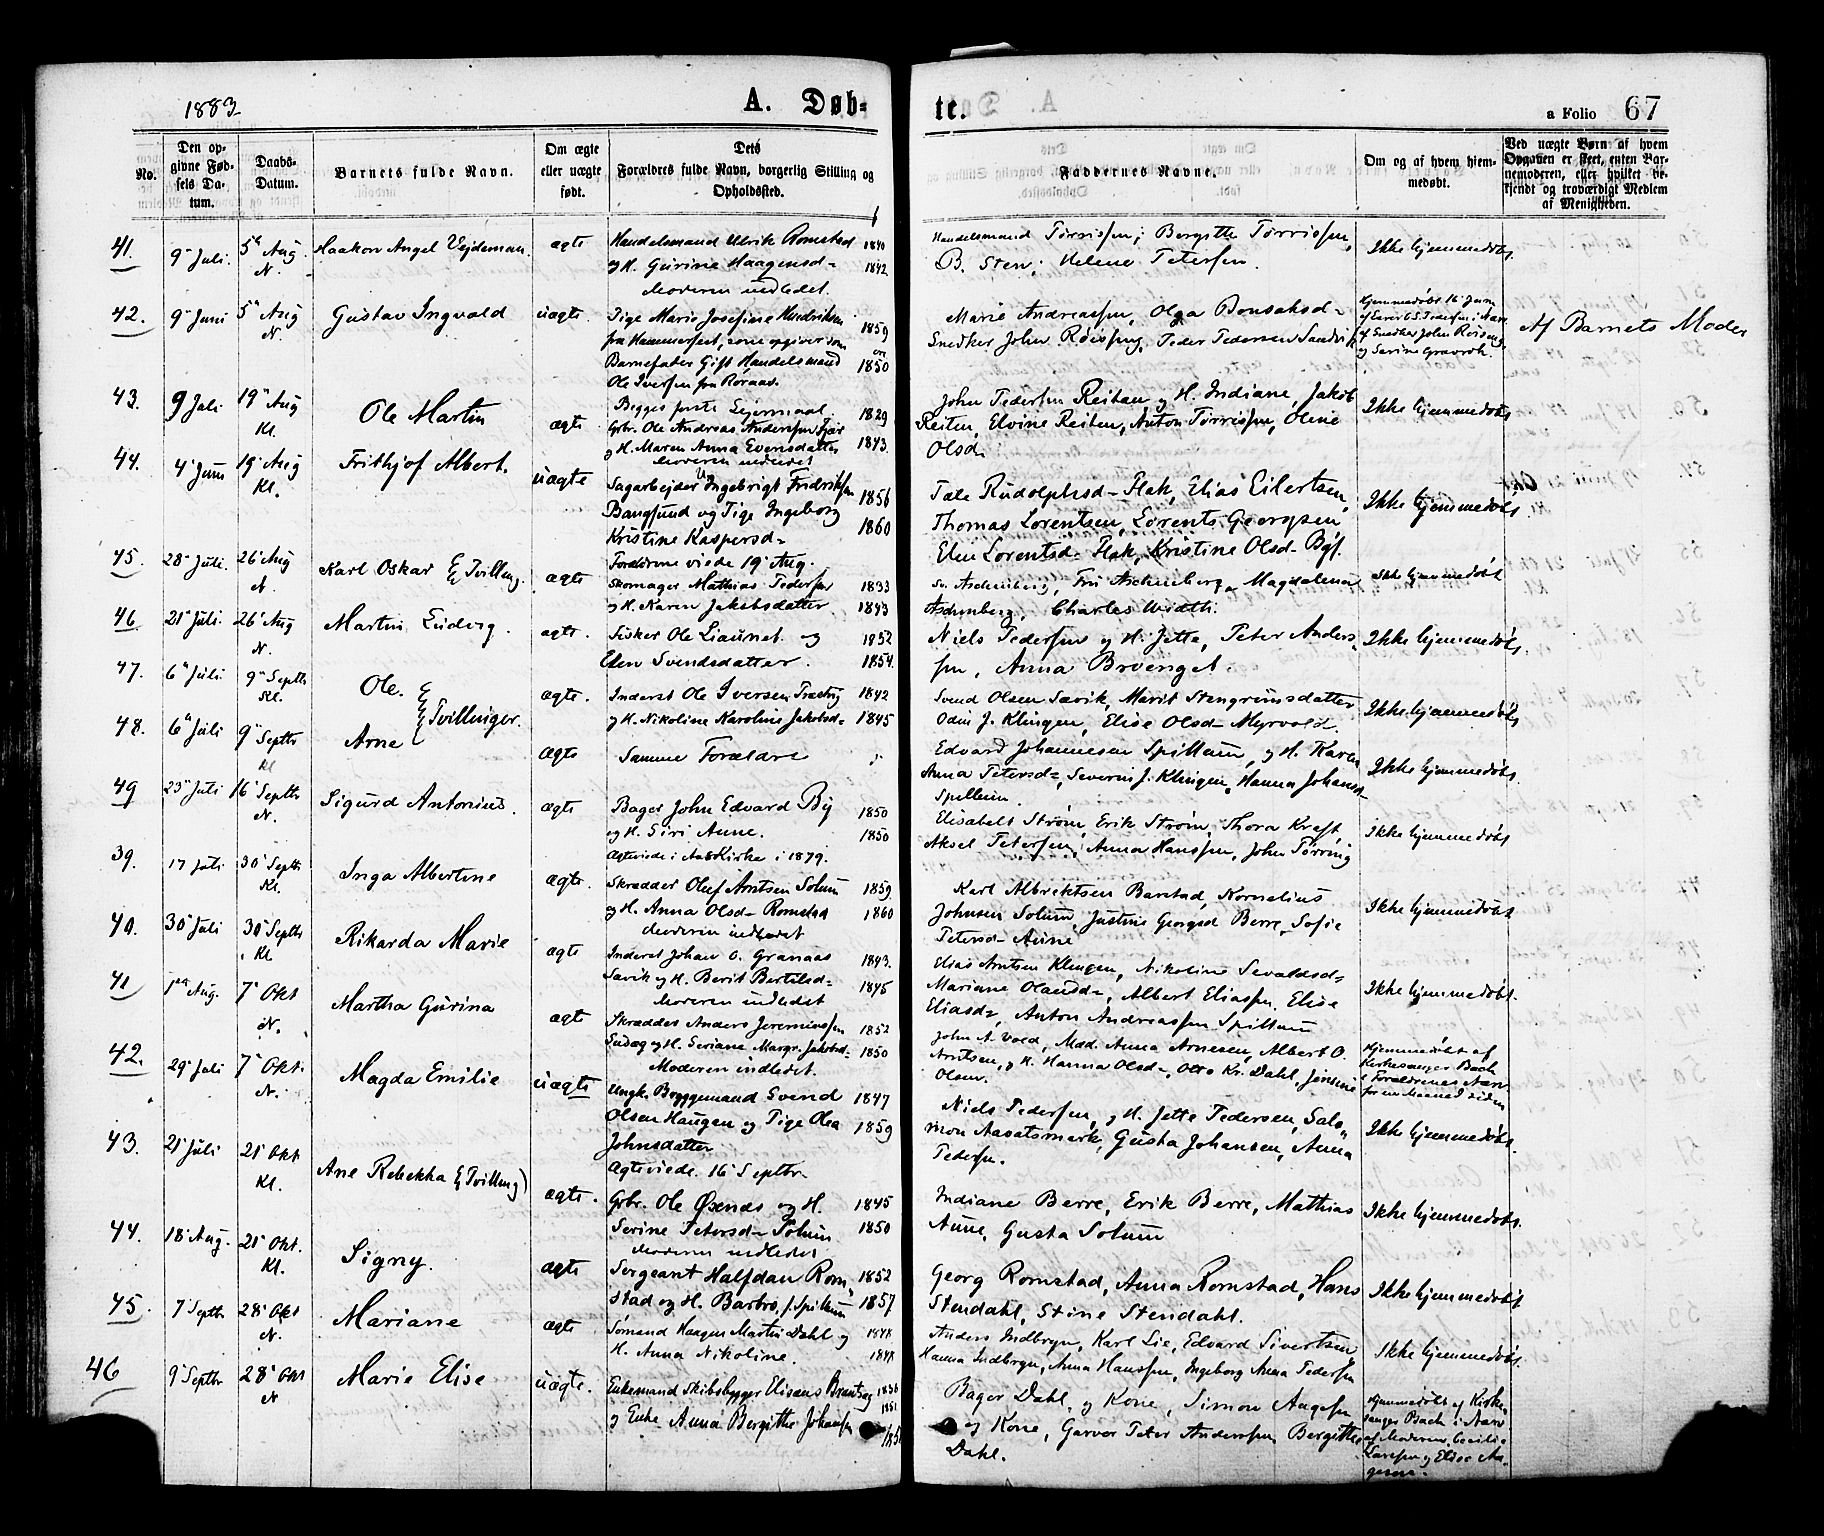 1883
A. Døb-
te.
a Folio 67
No.
Den op-
givne Fød-
sels Da-
tum.
Daabs-
Datum.
Barnets fulde Navn.
Om ægte
eller uægte
født.
Dets
Forældres fulde Navn, borgerlig Stilling og
Opholdssted.
Faddernes Navne.
Om og af hvem hjem-
medøbt.
Ved uægte Børn af hvem
Opgaven er skeet, enten Bar-
nemoderen, eller hvilket be-
kjendt og troværdigt Medlem
af Menigheden.
41. 9de Juli. 5te Aug N. Haakon Angel Vejdeman. ægte Handelsmand Ulrik Romstad 1840
og H. Gurine Haagensd- 1842
Moderen indledet.
Handelsmand Tørrissen; Bergitte Tørrissen,
B. Sten; Helene Petersen.
Ikke hjemmedøbt
42. 9de Juni 5te Aug N. Gustav Ingvald uægte. Pige Marie Josefine Hendriksen 1859
fra Hammerfest, som opgiver som
Barnefader Gift Handelsmand 1850
Ole Iversen fra Røraas.
Begges første Lejermaal.
Marie Andreassen, Olga Bonsaksd-
Snedker John Røising, Peder Pedersen Sandvik
Hjemmedøbt 16de Juni
af Snedker John Røising
og Serine Gravrok.
Af Barnets Moder
43. 9 Juli 19de Aug Kl. Ole Martin ægte Gbr. Ole Andreas Andersen 1829
og H. Maren Anna Evensdatter 1843
Moderen indledet
John Pedersen Reitan og H. Indiane, Jakob
Reiten, Elvine Reiten, Anton Tørrissen, Oline
Olsd.
Ikke hjemmedøbt
44. 4 Juni 19de Aug Kl. Frithjof Albert. uægte Sagarbejder Ingebrigt Fredriksen 1856
Bangsund og Pige Ingeborg 1860
Kristine Kaspersd-
Forældrene viede 19de Aug.
Tale Rudolphsd- Flak, Elias Eilertsen,
Thomas Lorentsen, Lorents Georgsen
Elen Lorentsd- Flak, Kristine Olsd-
Ikke hjemmedøbt.
45. 28de Juli. 26de Aug N. Karl Oskar (Tvilling ægte Skomager Mathias Pedersen 1833
og H. Karen Jakobsdatter 1843
Aschenberg, Fru Aschenberg, Magdalena
Aschenberg, Charles Width.
Ikke hjemmedøbt
46 21de Juli. 26de Aug N. Martin Ludvig. ægte. Fisker Ole Liaunet og 1852
Elen Svendsdatter. 1854.
Niels Pedersen og H. Jette, Peter Anders-
sen, Anna Brvenget.
Ikke hjemmedøbt.
47. 6te Juli 9de Septbr Kl. Ole. Tvillinger. ægte. Inderst Ole Iversen 1842
og H. Nikoline Karoline Jakobsd- 1845
Svend Olsen Savik, Marit Stengrimsdatter
Odin J. Klingen, Elise Olsd- Myrvold.
Ikke hjemmedøbt
48. 6te Juli 9de Septbr Kl Arne ægte Samme Forældre
Edvard Johannesen Spillum, og H. Karen
Anna Petersd-, Severin J. Klingen, Hanna Johansd-
Spillum.
Ikke hjemmedøbt.
49 23de Juli 16de Septbr N. Sigurd Antonius. ægte Bager John Edvard By 1850
og H. Siri Anne. 1850
Ægteviede i Aas Kirke i 1879.
Elisabeth Strøm, Erik Strøm, Thora Kraft,
Aksel Petersen, Anna Hanssen, John Tørring
Ikke hjemmedøbt
39. 17 Juli 30te Septbr Kl. Inga Albertine ægte. Skrædder Oluf Arntsen Solum 1859
og H. Anna Olsd- Romstad 1860
Moderen indledet
Karl Albriktsen Barstad, Kornelius
Johnsen Solum, Justine Georgsd Berre, Sofie
Petersd- Aune
Ikke hjemmedøbt
40. 30te Juli 30te Septbr Kl Rikarda Marie ægte Inderst Johan O. Granaas 1843.
Savik og H. Berit Bertilsd- 1845
Moderen indledet
Elias Arntsen Klingen, Nikoline Sevaldsd-
Mariane Olausd-, Albert Eliassen, Elise
Eliasd-, Anton Andreassen Spillum
Ikke hjemmedøbt.
41 1ste Aug. 7de Okt N. Martha Gurina ægte Skrædder Anders Jeremiassen 1852
og H. Seriane Margr. Jakobsd- 1850
Moderen indledet.
John A. Vold, Mad. Anna Arnesen, Albert O.
Arntsen, og H. Hanna Olsd-, Otto Kr. Dahl, Jensine
Olsen.
Hjemmedøbt af
Kirkesanger Bach
i Forældrenes Nærv
for en Maaned siden
42. 29de Juli 7de Okt. N. Magda Emilie uægte Ungk. Bryggemand Svend 1847
Olsen Haugen og Pige Olea 1859
Johnsdatter
Ægteviede. 16de Septbr
Niels Pedersen, og H. Jette Pedersen, Salo-
mon Aavatsmark, Gusta Johansen, Anna
Pedersen.
Ikke hjemmedøbt.
43. 21de Juli 21de Okt Kl. Ane Rebekka (Tvilling) ægte. Gbr. Ole Øxnes og H. 1845
Serine Petersd- Solum 1850
Moderen indledet
Indiane Berre, Erik Berre, Mathias
Aune, Gusta Solum
Ikke hjemmedøbt.
44. 18de Aug. 21de Okt. Kl. Signy. ægte Sergeant Halfdan Rom- 1852
stad og H. Barbro f. Spillum 1857
Georg Romstad, Anna Romstad, Hans
Stendahl, Stine Stendahl.
Ikke hjemmedøbt
45. 7de Septbr 28de Okt N. Mariane ægte Sømand Haagen Martin Dahl og 1848
H. Anna Nikoline. 1848
Anders Indbryn, Karl Lie, Edvard Sivertsen
Hanna Indbryn, Anna Hanssen, Ingeborg Anna Pedersen
Ikke hjemmedøbt.
46 9de Septbr 28de Okt N Marie Elise uægte. Enkemand Skibsbygger Elisæus 1836
og Enke Anna Bergitte Johansen 1851
Bager Dahl, og Kone, Simon Aagesen
og Kone, Garver Peter Anderssen, Bergitte
Dahl.
Hjemmedøbt af Kirke-
sanger Bach i Nærv
af Moderen, Cecilie
Larssen og Elise Aa-
gesen.